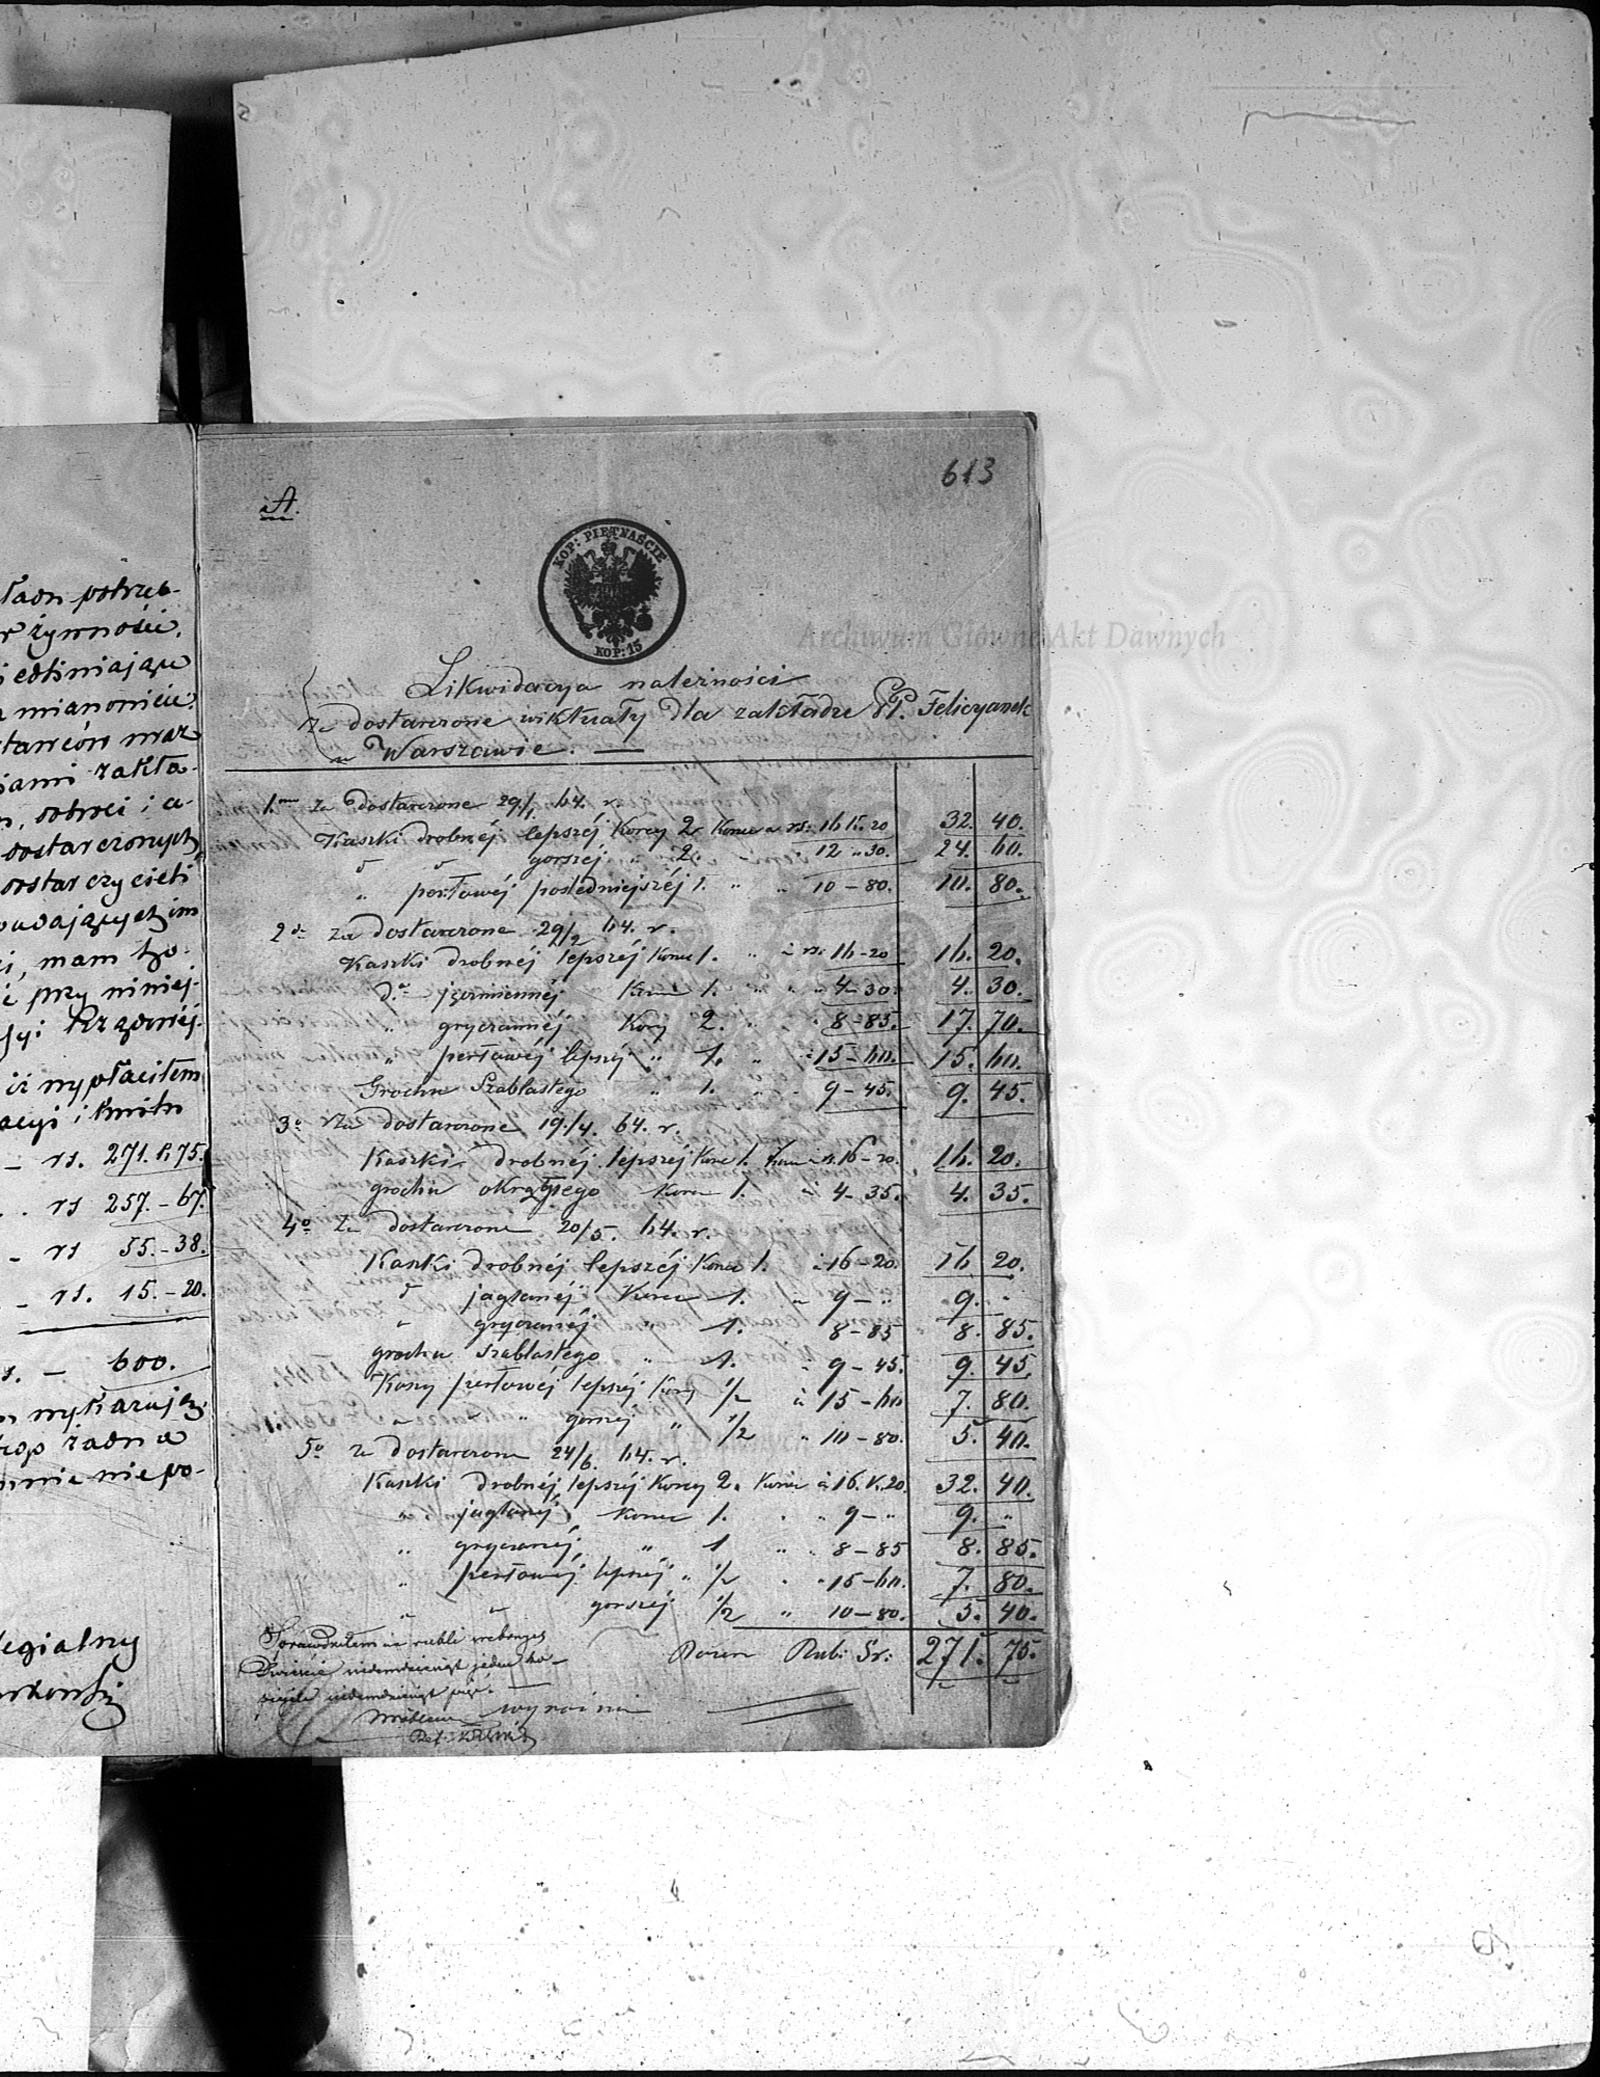 613
A.
KOP: PIĘTNAŚCIE
KOP: 15
Archiwum Główne Akt Dawnych
Likwidacya należności
za dostarczone wiktuały dla zakładu PP. Felicyanek
w Warszawie. —
1mo za dostarczone 29/1 64. r.
Kaszki drobnéj lepszéj Korcy 2 Korzec a rs: 16 K. 20 32. 40.
d d gorszéj " 2. " 12 " 30. 24. 60.
" perłowéj pośledniejszéj 1. " " 10 – 80. 10. 80.
2do za dostarczone 29/2 64. r.
Kaszki drobnéj lepszéj Korzec 1. " à rs. 16–20 16. 20.
do jęczmiennéj Korzec 1. " " " 4–30. 4. 30.
" gryczannéj Korcy 2. " " 8–85. 17. 70.
" perłowéj lepszéj " 1. " " 15–60. 15. 60.
Grochu Szablastego " 1. " " 9–45. 9. 45.
3o Za dostarczone 19/4. 64. r.
Kaszki drobnéj lepszéj Korzec 1. Korzec à rs. 16–20. 16. 20.
grochu okrągłego Korzec 1. à 4–35. 4. 35.
4o Za dostarczone 20/5. 64. r.
Kaszki drobnéj lepszéj Korzec 1. à 16–20. 16 20.
d jaglanéj Korzec 1. " 9 – " 9. "
" gryczanéj " 1. 8–85 8. 85.
grochu szablastego " 1. " 9–45. 9. 45
Kaszy perłowéj lepszéj Korcy 1/2 à 15–60 7. 80.
" " gorszéj " 1/2 " 10–80. 5. 40.
5o za dostarczone 24/6. 64. r.
Kaszki drobnéj lepszéj Korcy 2. Korzec à 16. K. 20. 32. 40.
" jaglanéj Korzec 1. " " 9 – " 9. "
" gryczanéj " 1 " " 8–85 8. 85.
" perłowéj lepszéj " 1/2 " " 15–60. 7. 80.
" " gorszéj 1/2 " 10–80. 5. 40.
Razem Rub: Sr: 271. 75.
Sprawdziłem na rubli srebrnych
Dwieście siedemdziesiąt jeden ko–
piejek siedemdziesiąt pięć. —
ładu potrzeb-
żywności,
mianowicie:
oraz
zakła-
dostarczonych,
dostarczycieli
mam ho-
przy niniej-
Rządowéj.
iż wypłaciłem
– rs. 271. k. 75.
. . rs 257. – 67.
– rs 55. – 38.
– rs. 15. – 20.
s. – 600.
żadna
mnie nie po-